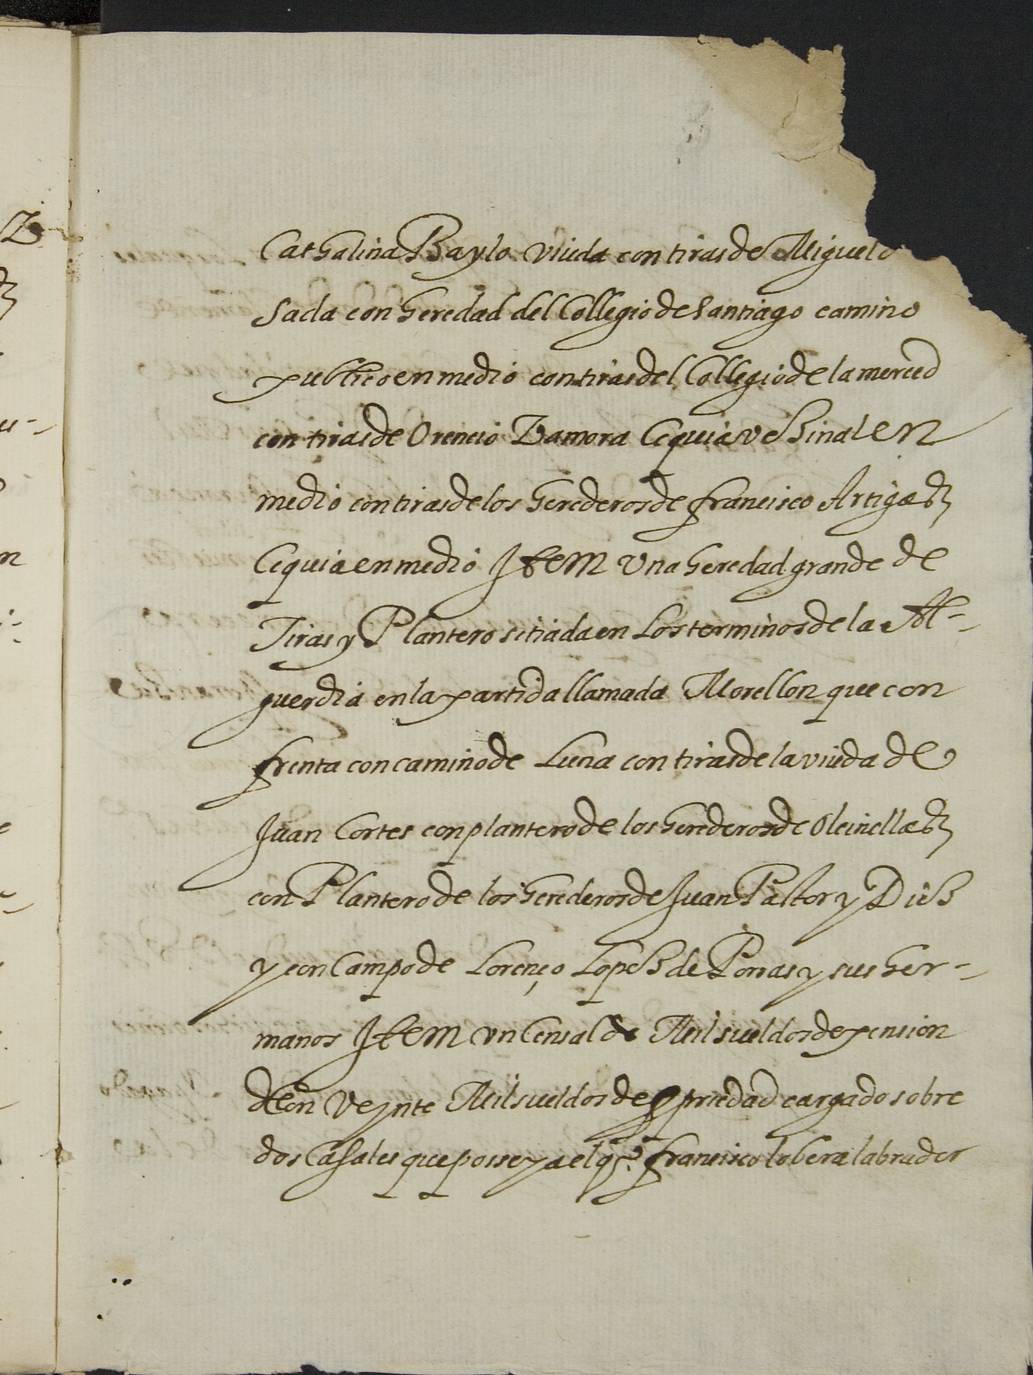 Cathalina Baylo viuda con tiras de Miguel
sada con heredad del Collegio de Santiago camino
publico en medio con tiras del Collegio de la merced
con tiras de Orencio Zamora Cequia vehinal en
medio con tiras de los herederos de francisco Artigaez
Cequia en medio Item Una heredad grande de
Tiras y Plantero sitiada en Los terminos de la Al-
guerdia en la partida llamada Morellon que con
frenta con camino de Luna con tiras de la viuda de
Juan Cortes con plantero de los herederos de Oleinellaez
con Plantero de los herederos de Juan Pastor y Dieh
y con Campo de Lorenço Lopeh de Porras y sus her-
manos Item Un Censal de Mil sueldos de pension
con Veynte Mil sueldos de propriedad cargado sobre
dos Casales que posseya el qº. francisco lobera labrador